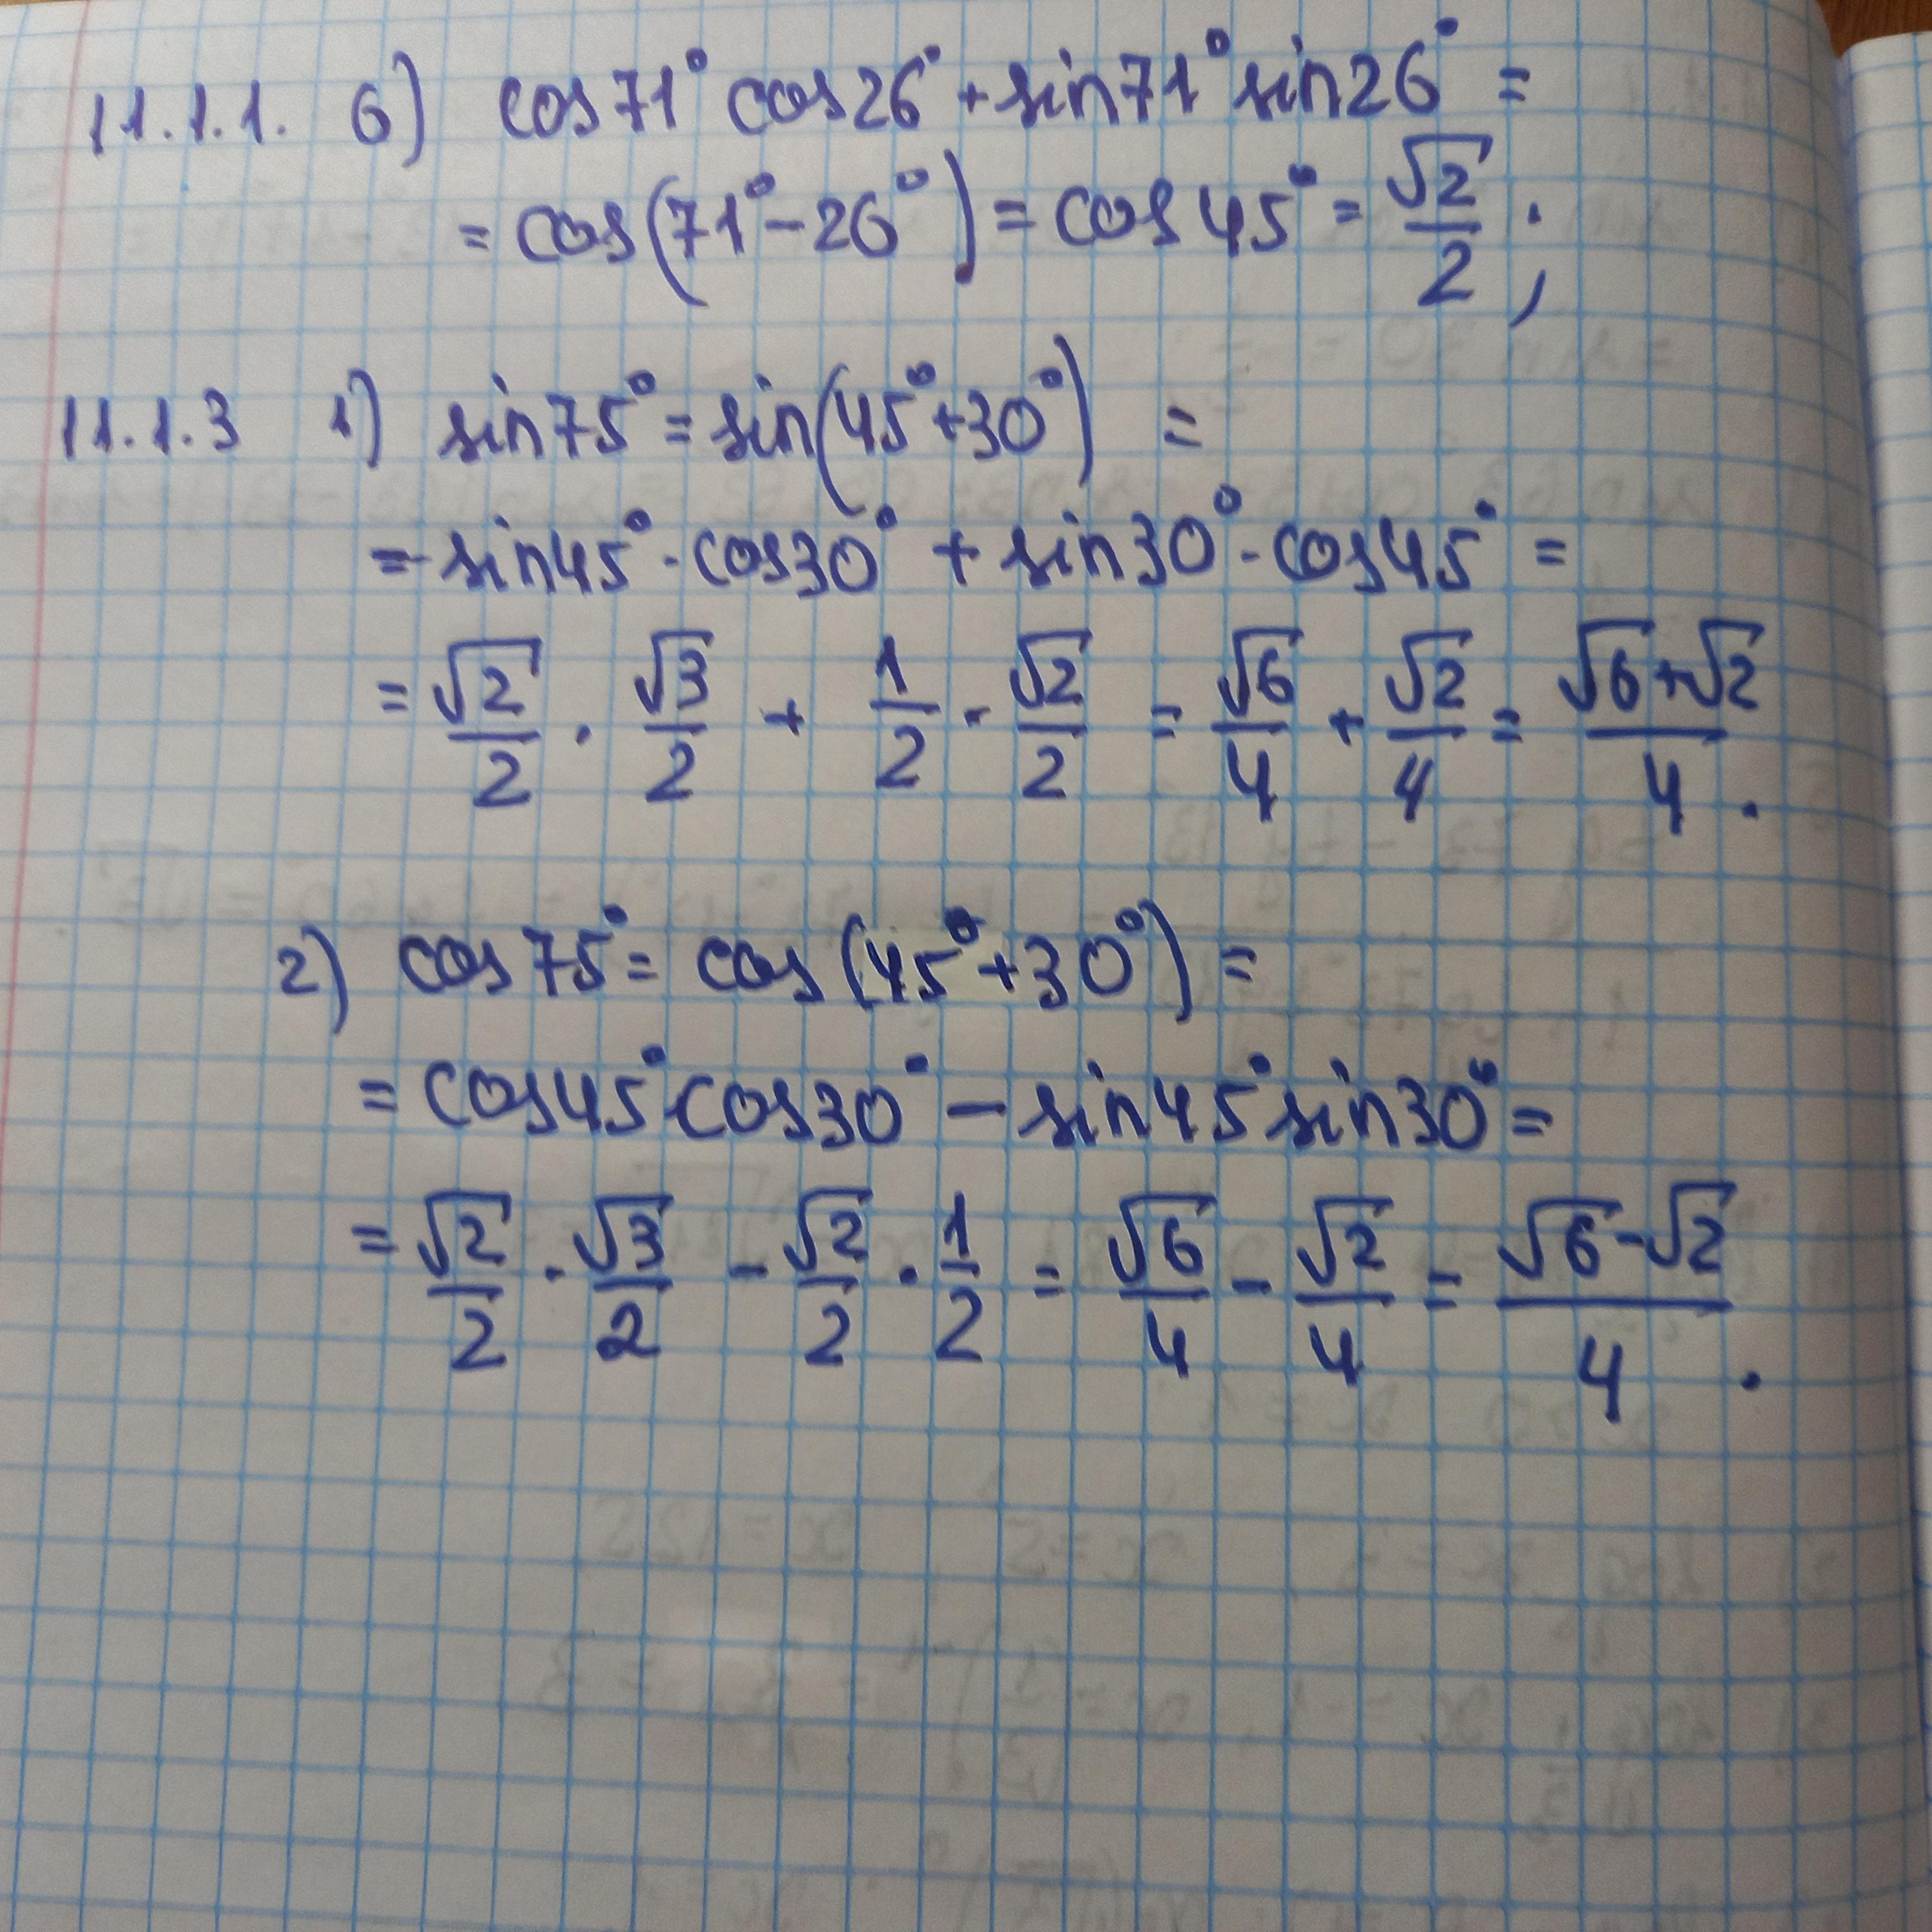 11.1.1. 6) cos71° cos26° + sin71° sin26° =
= cos(71° - 26°) = cos 45° = √2/2 ;
11.1.3 1) sin75° = sin(45° + 30°) =
= sin45° · cos30° + sin30° · cos45° =
= √2/2 · √3/2 + 1/2 · √2/2 = √6/4 + √2/4 = (√6+√2)/4 .
2) cos75° = cos(45° + 30°) =
= cos45° cos30° − sin45° sin30° =
= √2/2 · √3/2 - √2/2 · 1/2 = √6/4 - √2/4 = (√6-√2)/4 .